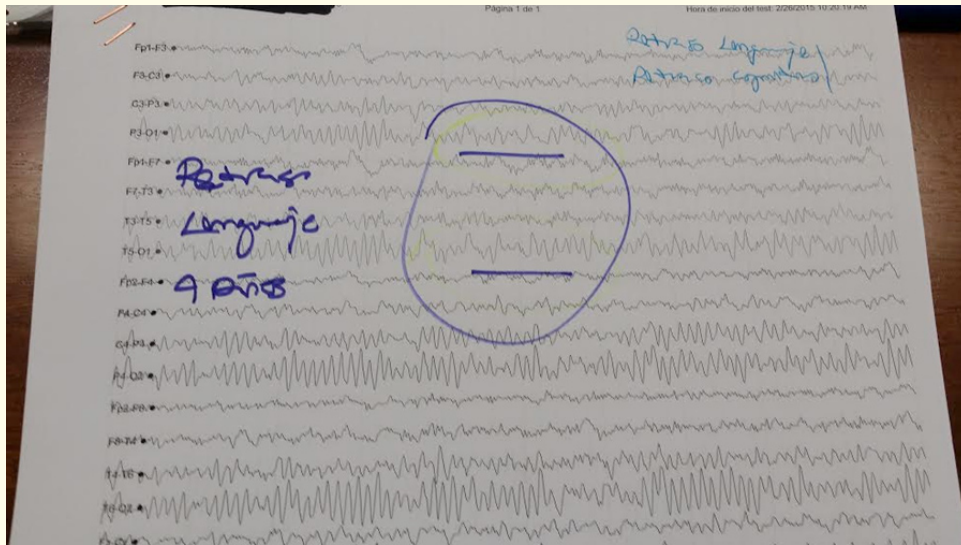 Página 1 de 1
Hora de inicio del test: 2/26/2015 10:20:19 AM
Retraso Lenguaje/
Retraso cognitivo/
Fp1-F3
F3-C3
C3-P3
P3-O1
Fp1-F7
F7-T3
T3-T5
T5-O1
Fp2-F4
F4-C4
C4-P4
P4-O2
Fp2-F8
F8-T4
T4-T6
T6-O2
Retraso
Lenguaje
9 años